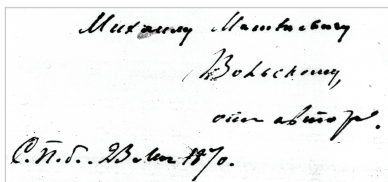 Михаилу Матвеевичу
Вольскому,
отъ автора.
С.П.б. 23 Мая 1870.